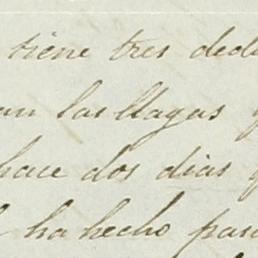 tiene tres ded
an las llagas
hace dos dias
ha hecho pas